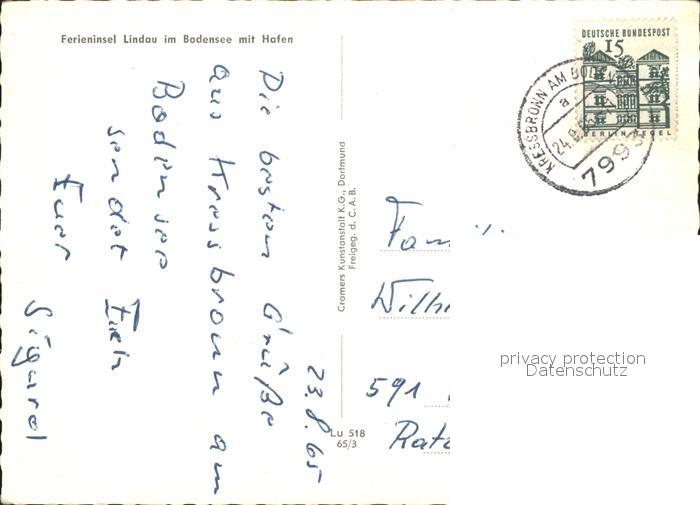 Ferieninsel Lindau im Bodensee mit Hafen
23.8.65
Die besten Grüße
aus Kressbronn am
Bodensee
sendet Euch
Euer
Cramers Kunstanstalt K.G., Dortmund
Freigeg. d. C.A.B.
Lu 518
65/3
DEUTSCHE BUNDESPOST
15
BERLIN TEGEL
KRESSBRONN AM BODENSEE
a
24.8.65
7993
Fam
Wilh
591
Ratz
privacy protection
Datenschutz